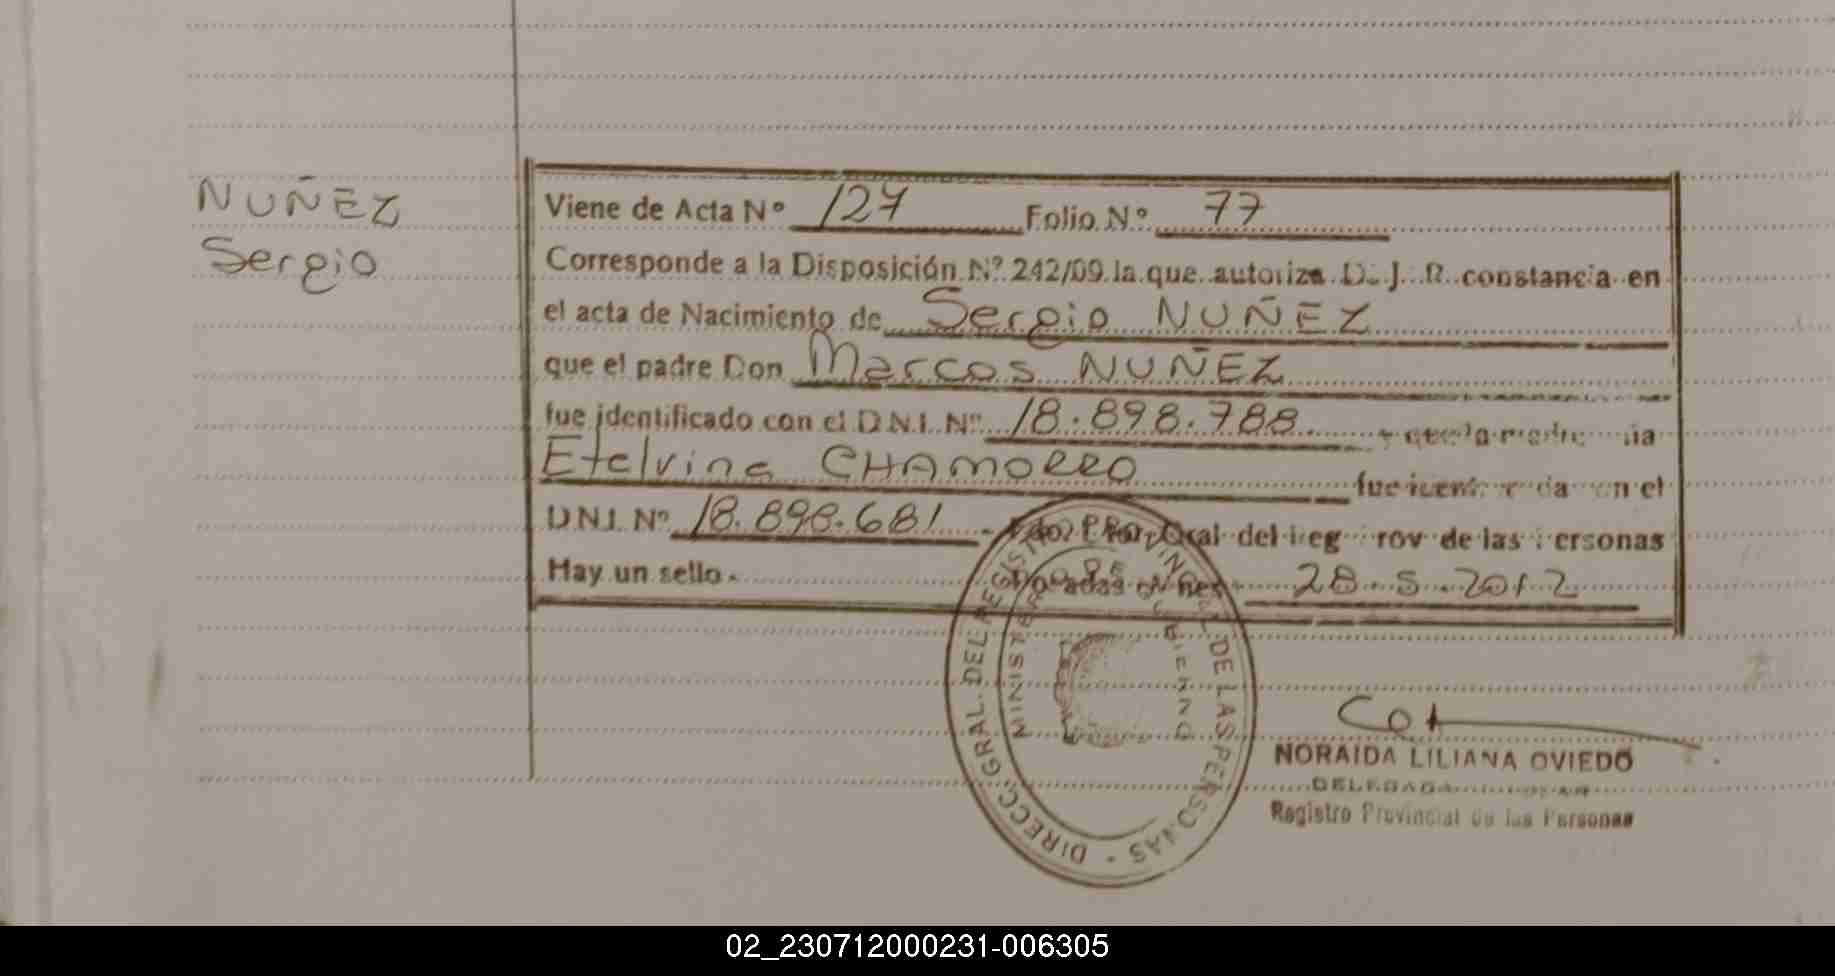 NUÑEZ
Sergio
Viene de Acta Nº 127 Folio Nº 77
Corresponde a la Disposición Nº 242/09 la que autoriza D. J. R. constancia en
el acta de Nacimiento de Sergio NUÑEZ
que el padre Don Marcos NUÑEZ
fue identificado con el D.N.I. Nº 18.898.788.
Etelvina CHAMORRO fue
D.N.I. Nº 18.898.681 Gral del de las Personas
Hay un sello. 28.5.2012
DIRECC. GRAL. DEL REGISTRO PROVINCIAL DE LAS PERSONAS
MINISTERIO DE GOBIERNO
NORAIDA LILIANA OVIEDO
DELEGADA
Registro Provincial de las Personas
02_230712000231-006305